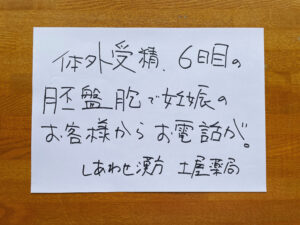 体外受精、6日目の
胚盤胞で妊娠の
お客様からお電話が。
しあわせ漢方 土屋薬局